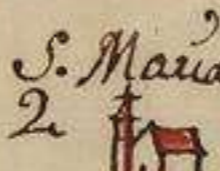 S. Maria
2